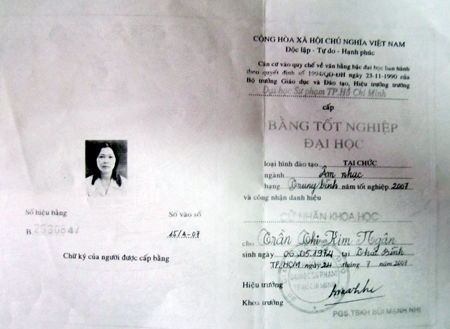 CỘNG HÒA XÃ HỘI CHỦ NGHĨA VIỆT NAM
Độc lập - Tự do - Hạnh phúc
Căn cứ vào quy chế về văn bằng bậc đại học ban hành
theo quyết định số 1994/QĐ-ĐH ngày 23-11-1990 của
Bộ trưởng Giáo dục và Đào tạo, Hiệu trưởng trường
Đại học Sư phạm TP.Hồ Chí Minh
cấp
BẰNG TỐT NGHIỆP
ĐẠI HỌC
loại hình đào tạo TẠI CHỨC
ngành Âm nhạc
hạng Trung bình năm tốt nghiệp 2007
và công nhận danh hiệu
CỬ NHÂN KHOA HỌC
cho Trần Thị Kim Ngân
sinh ngày 06.05.1974 tại Thái Bình
TP.HCM ngày 24 tháng 7 năm 2007
Hiệu trưởng
Khoa trưởng
PGS.TSKH BÙI MẠNH NHỊ
Số hiệu bằng
B
Số vào sổ
Chữ ký của người được cấp bằng